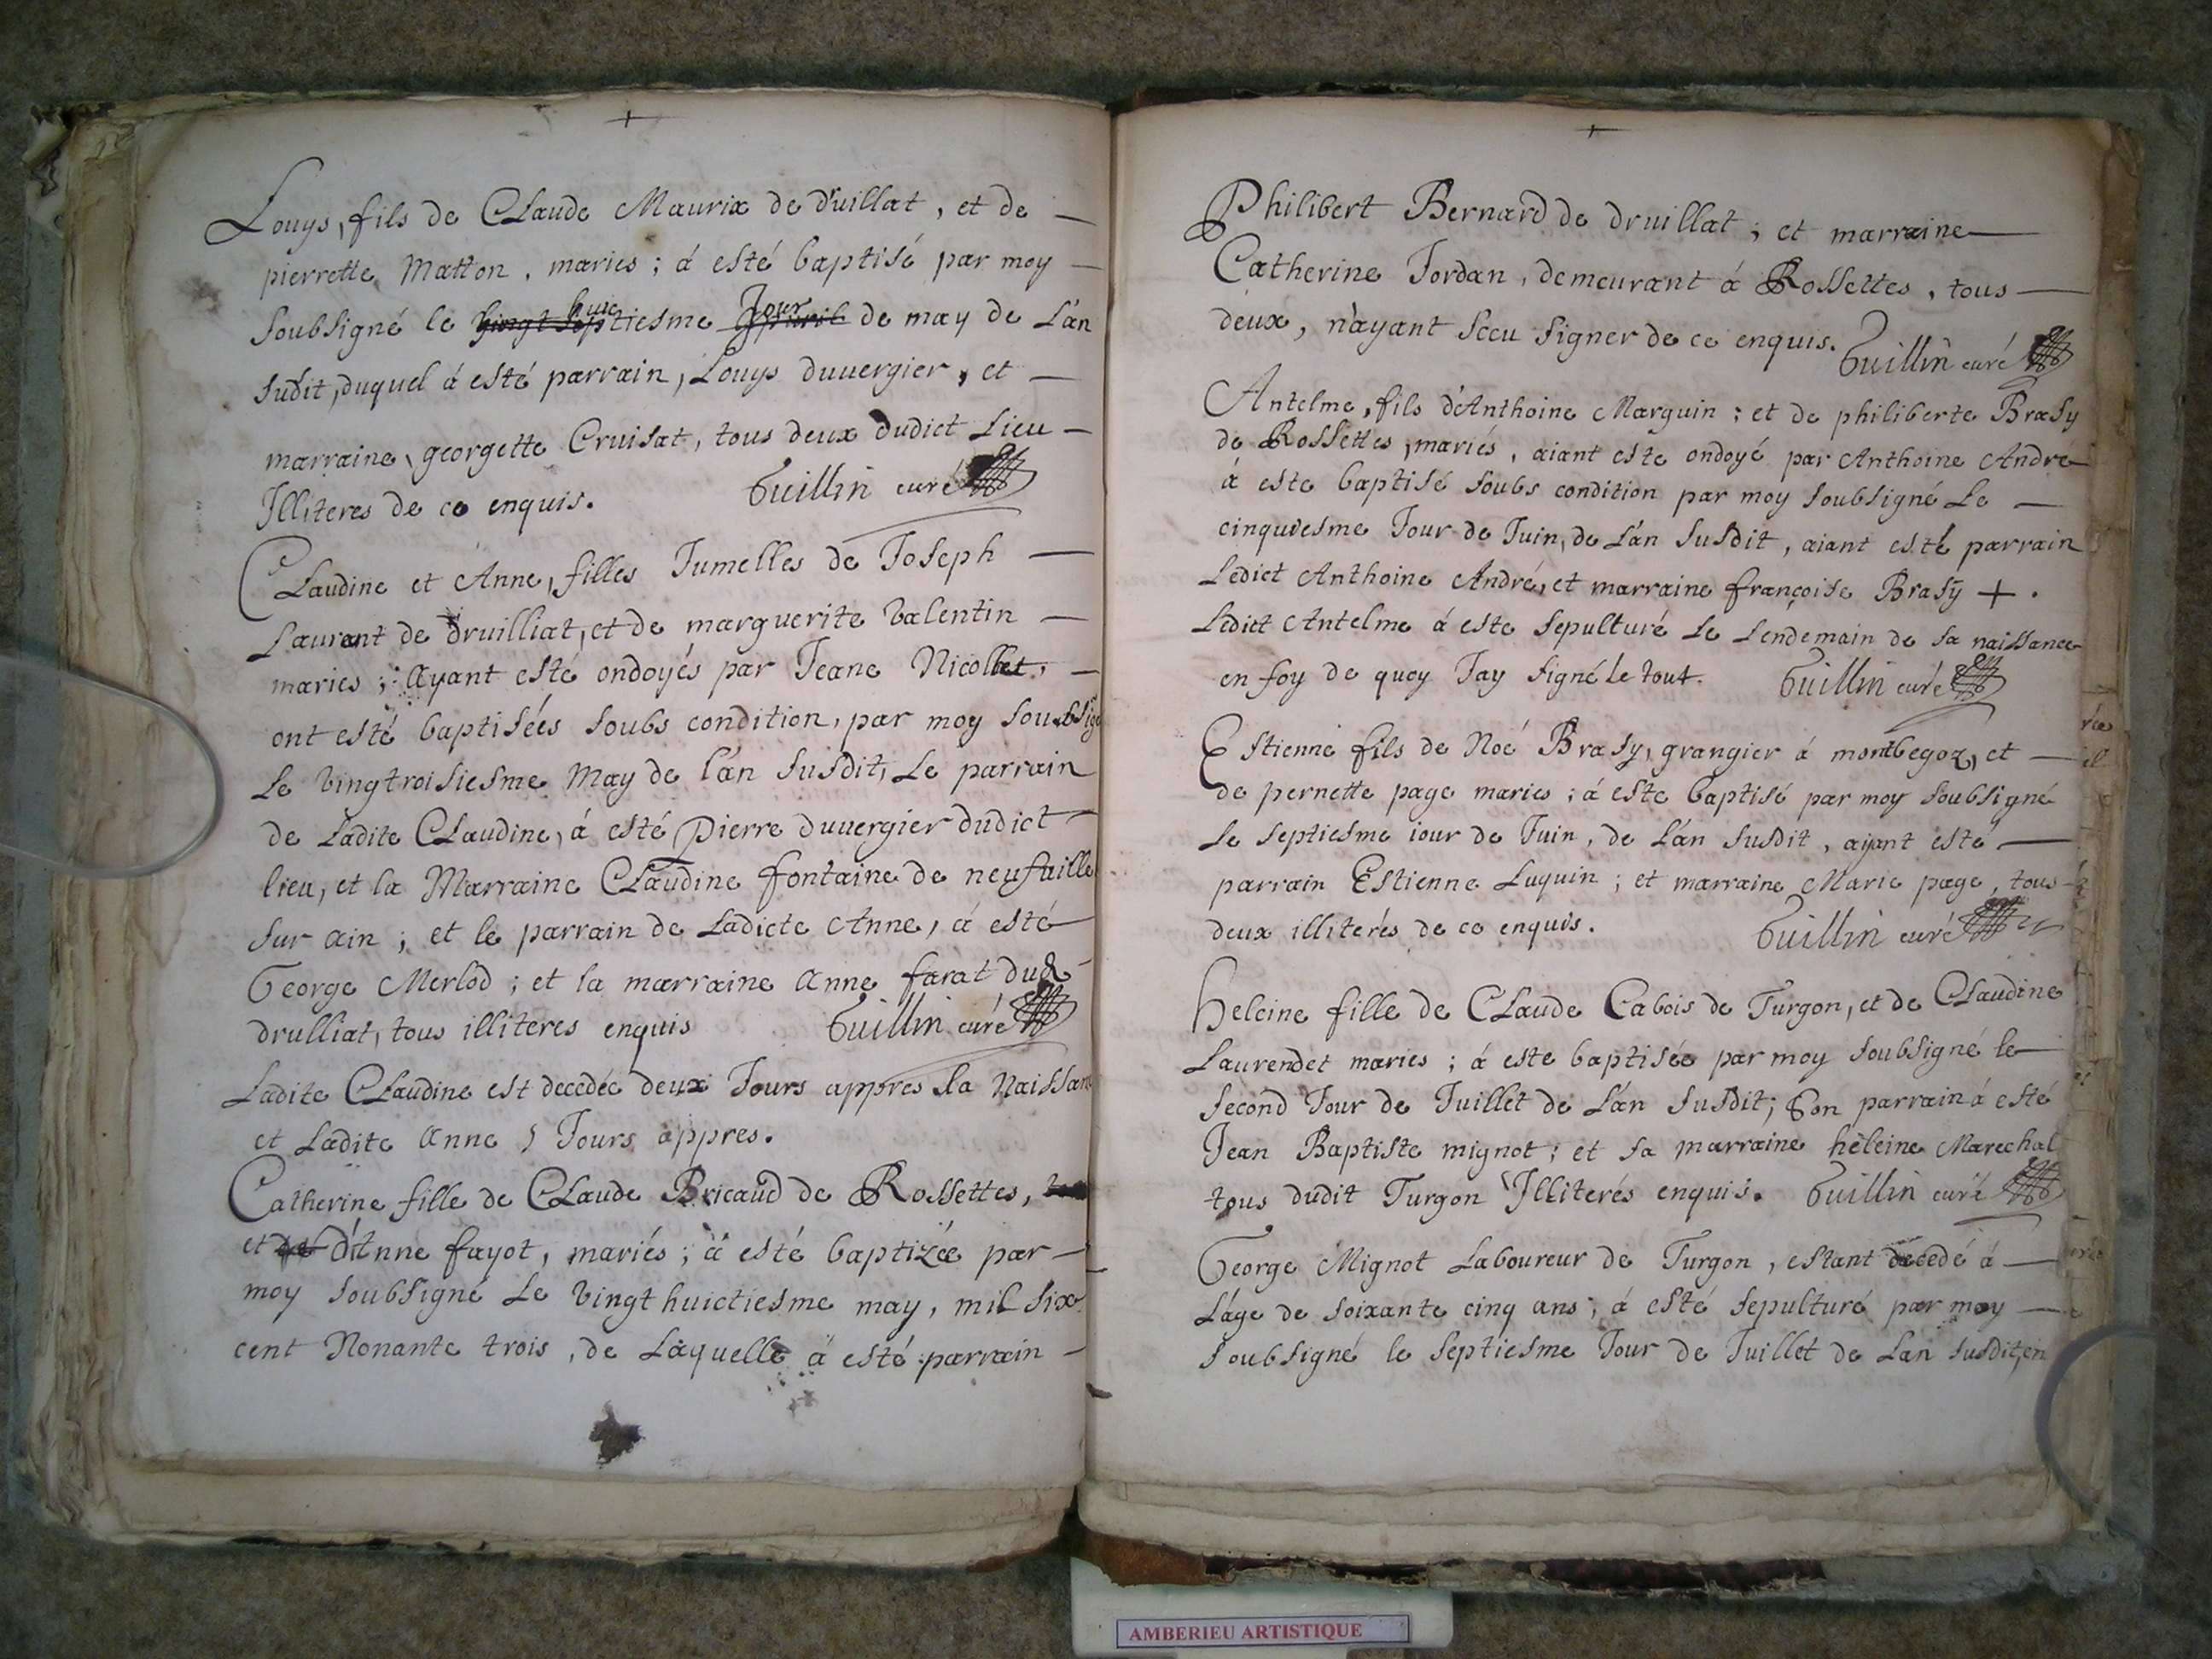 Louys, fils de Claude Maurix de druillat, et de
pierrette Matton, maries; á esté baptisé par moy
soubsigné le huictiesme Jour de may de l'an
susdit, duquel á esté parrain, Louys duuergier, et
marraine, georgette Cruisat, tous deux dudict Lieu
Illiteres de ce enquis. Guillin curé
Claudine et Anne, filles Jumelles de Joseph
Laurent de druilliat, et de marguerite Valentin
maries; Ayant esté ondoyés par Jeane Nicollet,
ont esté baptisées soubs condition, par moy soubsig
Le Vingtroisiesme May de l'an susdit, Le parrain
de Ladite Claudine, á esté Pierre duuergier dudict
lieu, et la Marraine Claudine fontaine de neufuille
sur ain; et le parrain de Ladicte Anne, á esté
George Merlod; et la marraine Anne farat dud
drulliat, tous illiteres enquis Guillin curé
Ladite Claudine est decedée deux Jours appres sa Naissan
et Ladite Anne 5 Jours appres.
Catherine fille de Claude Bricaud de Rossettes,
et d'Anne fayot, mariés; á esté baptizée par
moy soubsigné Le Vingt huictiesme may, mil six
cent Nonante trois, de Laquelle á esté parrain
Philibert Bernard de druillat; et marraine
Catherine Jordan, demeurant á Rossettes, tous
deux, n'ayant sceu signer de ce enquis. Guillin curé
Antelme, fils d'Anthoine Marguin; et de philiberte Brasy
de Rossettes, mariés, aiant esté ondoyé par Anthoine André
á esté baptisé soubs condition par moy soubsigné Le
cinquiesme Jour de Juin, de L'an susdit, aiant esté parrain
Ledict Anthoine André, et marraine françoise Brasy +.
Ledict Antelme á esté sepulturé Le Lendemain de sa naissance
en foy de quoy Jay signé le tout. Guillin curé
Estienne fils de Noé Brasy, grangier á montbegoz, et
de pernette page maries; á esté baptisé par moy soubsigné
Le septiesme iour de Juin, de L'an susdit, ayant esté
parrain Estienne Luquin; et marraine Marie page, tous
deux illiterés de ce enquis. Guillin curé
Heleine fille de Claude Cabois de Turgon, et de Claudine
Laurendet maries; á esté baptisée par moy soubsigné le
second Jour de Juillet de L'an susdit; Son parrain á esté
Jean Baptiste mignot; et sa marraine héleine Marechal
tous dudit Turgon Illiterés enquis. Guillin curé
George Mignot Laboureur de Turgon, estant decedé á
L'age de soixante cinq ans; á esté sepulturé par moy
soubsigné le septiesme Jour de Juillet de Lan susdit, en
AMBERIEU ARTISTIQUE